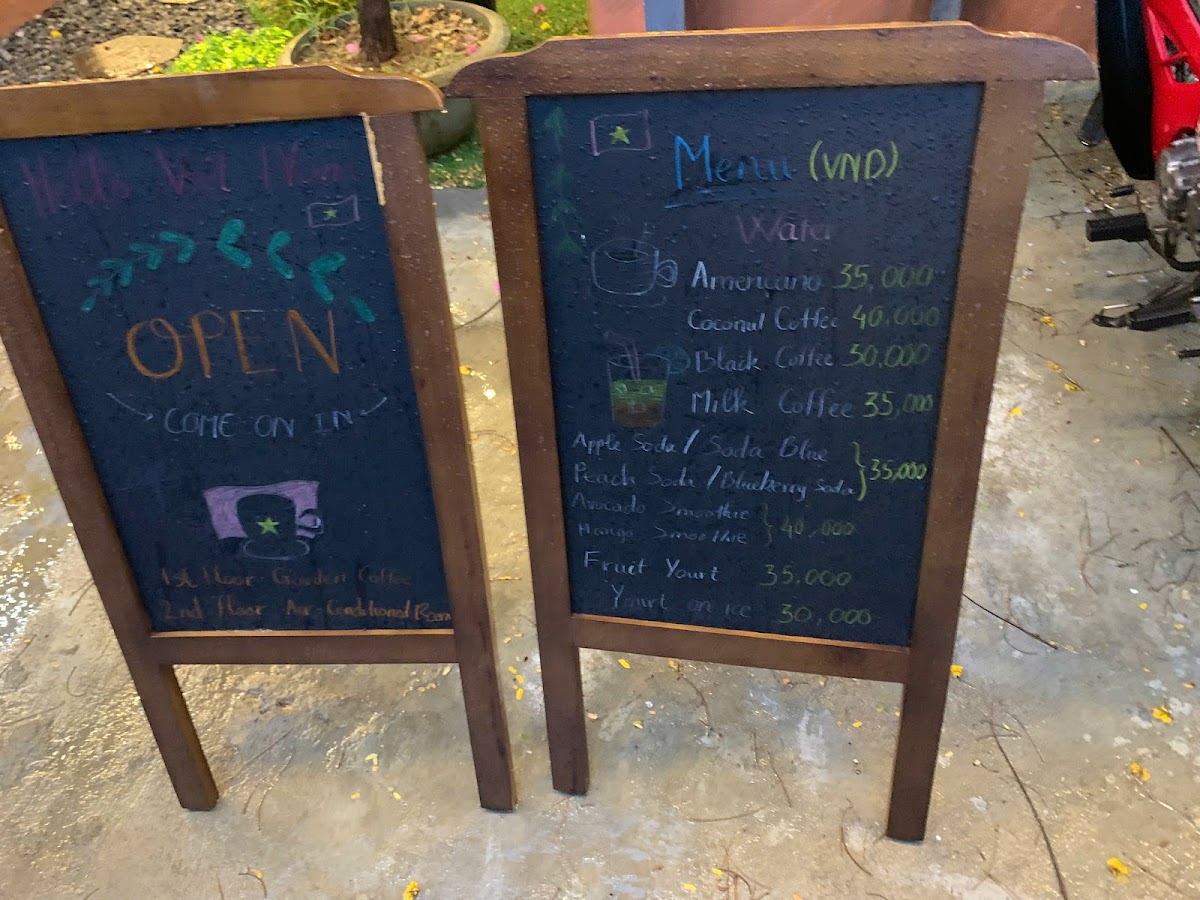 Hello Viet Nam
OPEN
COME ON IN
1st floor - Garden Coffee
2nd floor Air-Conditioned Room
Menu (VND)
Water
Americano 35,000
Coconut Coffee 40,000
Black Coffee 30,000
Milk Coffee 35,000
Apple Soda / Soda Blue
Peach Soda / Blueberry Soda } 35,000
Avocado Smoothie
Mango Smoothie } 40,000
Fruit Yourt 35,000
Yourt on ice 30,000